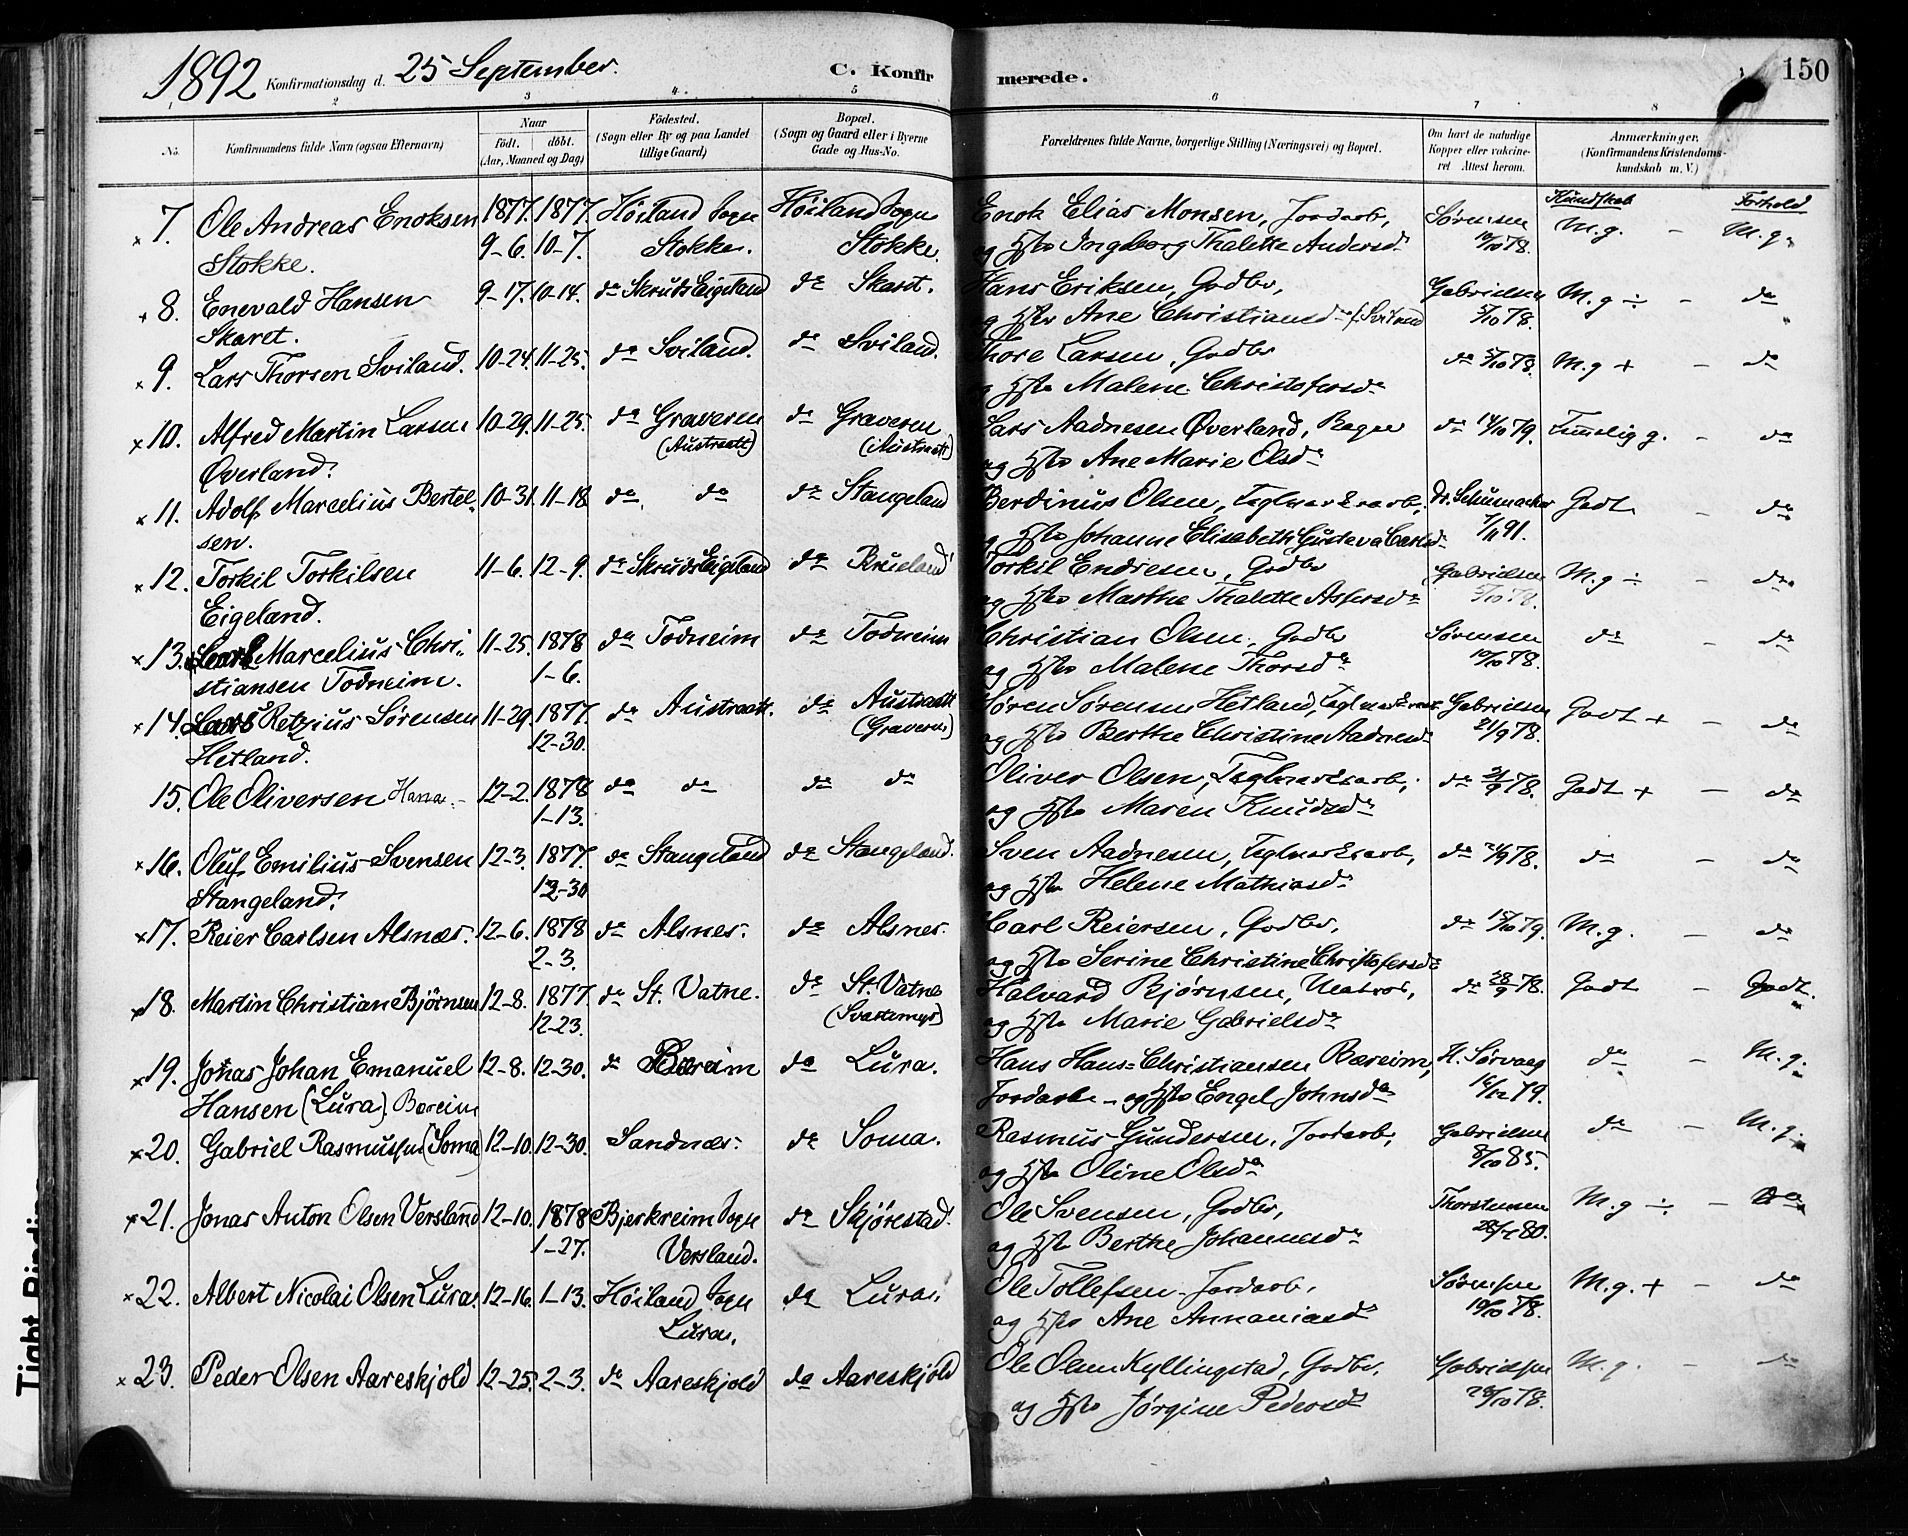 1892 Konfirmationsdag d. 25 September. C. Konfirmerede. 150
2 3 4. 5 6 7 8
No. Konfirmandens fulde Navn (ogsaa Efternavn) Naar födt. döbt. (Aar, Maaned og Dag) Födested. (Sogn eller By og paa Landet tillige Gaard) Bopæl. (Sogn og Gaard eller i Byerne Gade og Hus-No. Forældrenes fulde Navne, borgerlige Stilling (Næringsvei) og Bopæl. Om havt de naturlige Kopper eller vaccineret Attest herom. Anmærkninger. (Konfirmandens Kristendomskundskab m. V.)
Kundskab Forhold
x 7. Ole Andreas Enoksen 1877. 1877. Höiland Sogn Höiland Sogn Enok Elias Monsen, Jordarb, Sørensen M.g. - M.g.
Stokke. 9-6. 10-7. Stokke. Stokke. og Hstr Ingeborg Thalette Andersdr 10/10 78.
x 8. Enevald Hansen 9-17. 10-14. do Skruds Eigeland do Skaret. Hans Eriksen, Godbr, Gabrielsen M.g ÷ - do
Skaret. og Hstr Ane Christiansdr f. Sviland 5/10 78.
x 9. Lars Thorsen Sviland. 10-24. 11-25. do Sviland. do Sviland. Thore Larsen, Godbr do 5/10 78. M.g + - do
og Hstr Malene Christofersdr
x 10. Alfred Martin Larsen 10-29. 11-25. do Graveren do Graveren Lars Aadnesen Øverland, do 14/10 79. Temmelig g. - do
Øverland. (Austraatt) (Austraatt) og Hstr Ane Marie Olsdr
x 11. Adolf Marcelius Bertel- 10-31. 11-18 do do do Stangeland Berdinus Olsen, Teglverksarb, Dr. Schumacher Godt - do
sen. og Hstr Johanne Elisabeth Gustava Carlsdr 91.
x 12. Torkil Torkilsen 11-6. 12-9. do Skruds Eigeland do Brueland Torkil Endresen, Godbr Gabrielsen M.g ÷ - do
Eigeland. og Hstr Marthe Thalette Asfersdr 5/10 78.
x 13. Marcelius Chri- 11-25. 1878 do Todneim do Todneim Christian Olsen, Godbr Sørensen do - do
stiansen Todneim. 1-6. og Hstr Malene Thorsdr 10/10 78.
x 14. Retzius Sørensen 11-29. 1877. do Austraatt. do Austraatt Søren Sørensen Hetland, Gabrielsen Godt + - do
Hetland. 12-30. (Graveren) og Hstr Berthe Christine Aadnesdr 21/9 78.
15. Ole Oliversen Hana. - 12-2. 1878 do do do do Oliver Olsen, Teglverksarb, do 21/9 78. Godt + - do
1-13. og Hstr Maren Knudsdr
x 16. Oluf Emilius Svensen 12-3. 1877. do Stangeland do Stangeland. Sven Aadnesen, Teglverksarb, do 21/9 78. do - do
Stangeland. 12-30 og Hstr Helene Mathiasdr
x 17. Reier Carlsen Alsnæs. 12-6. 1878 do Alsnes. do Alsnes. Carl Reiersen, Godbr, do 15/10 79. M.g. - do
2-3. og Hstr Serine Christine Christofersdr
x 18. Martin Christian Bjørnsen 12-8. 1877. do St. Vatne. do St. Vatne Halvard Bjørnsen, Matros, do 28/9 78. Godt - Godt.
12-23. (Svartemyr) og Hstr Marie Gabrielsdr
x 19. Jonas Johan Emanuel 12-8. 12-30. do Bæreim do Lura. Hans Hans-Christiansen Bæreim, H. Sørvaag do - M.g.
Hansen (Lura) Bæreim Jordarb - og Hstr Engel Johnsdr 16/12 79.
x 20. Gabriel Rasmussen (Soma) 12-10. 12-30. Sandnæs. do Soma. Rasmus Gundersen, Jordarb, Gabrielsen do - M.g.
og Hstr Oline Olsdr 8/10 85.
x 21. Jonas Anton Olsen Versland 12-10. 1878 Bjerkreim Sogn do Skjørestad. Ole Svensen, Godbr, Thorstensen M.g ÷ - do
1-27. Versland. og Hstr Berthe Johannesdr 80.
x 22. Albert Nicolai Olsen Lura. 12-16. 1-13. Höiland Sogn do Lura. Ole Tollefsen Jordarb, Sørensen M.g. + - do
Lura. og Hstr Ane Annaniasdr 10/10 78.
x 23. Peder Olsen Aareskjold 12-25. 2-3. do Aareskjold do Aareskjold Ole Olsen Kyllingstad, Godbr, Gabrielsen M.g. - do
og Hstr Jørgine Pedersdr 26/10 78.